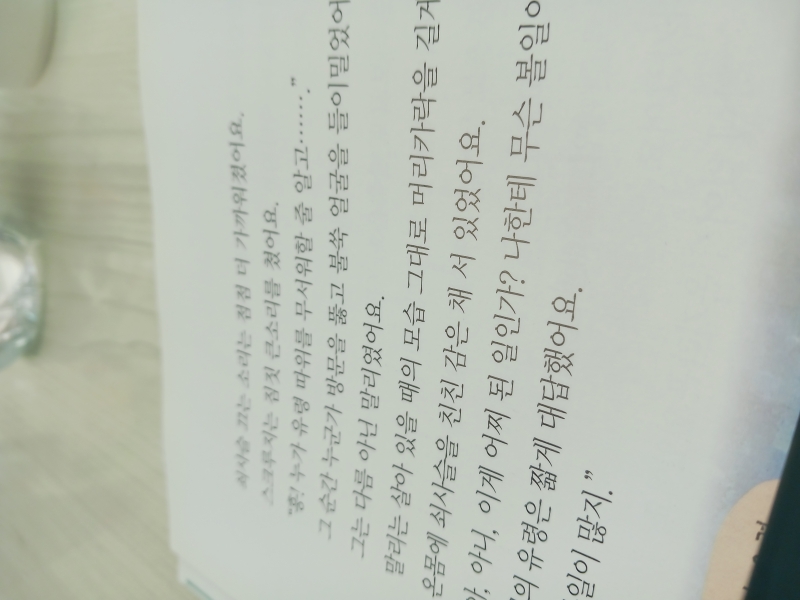 쇠사슬 끄는 소리는 점점 더 가까워졌어요.
스크루지는 짐짓 큰소리를 쳤어요.
"흥! 누가 유령 따위를 무서워할 줄 알고……."
그 순간 누군가 방문을 뚫고 불쑥 얼굴을 들이밀었어
그는 다름 아닌 말리였어요.
말리는 살아 있을 때의 모습 그대로 머리카락을 길게
온몸에 쇠사슬을 친친 감은 채 서 있었어요.
아니, 이게 어찌 된 일인가? 나한테 무슨 볼일이
의 유령은 짧게 대답했어요.
일이 많지."